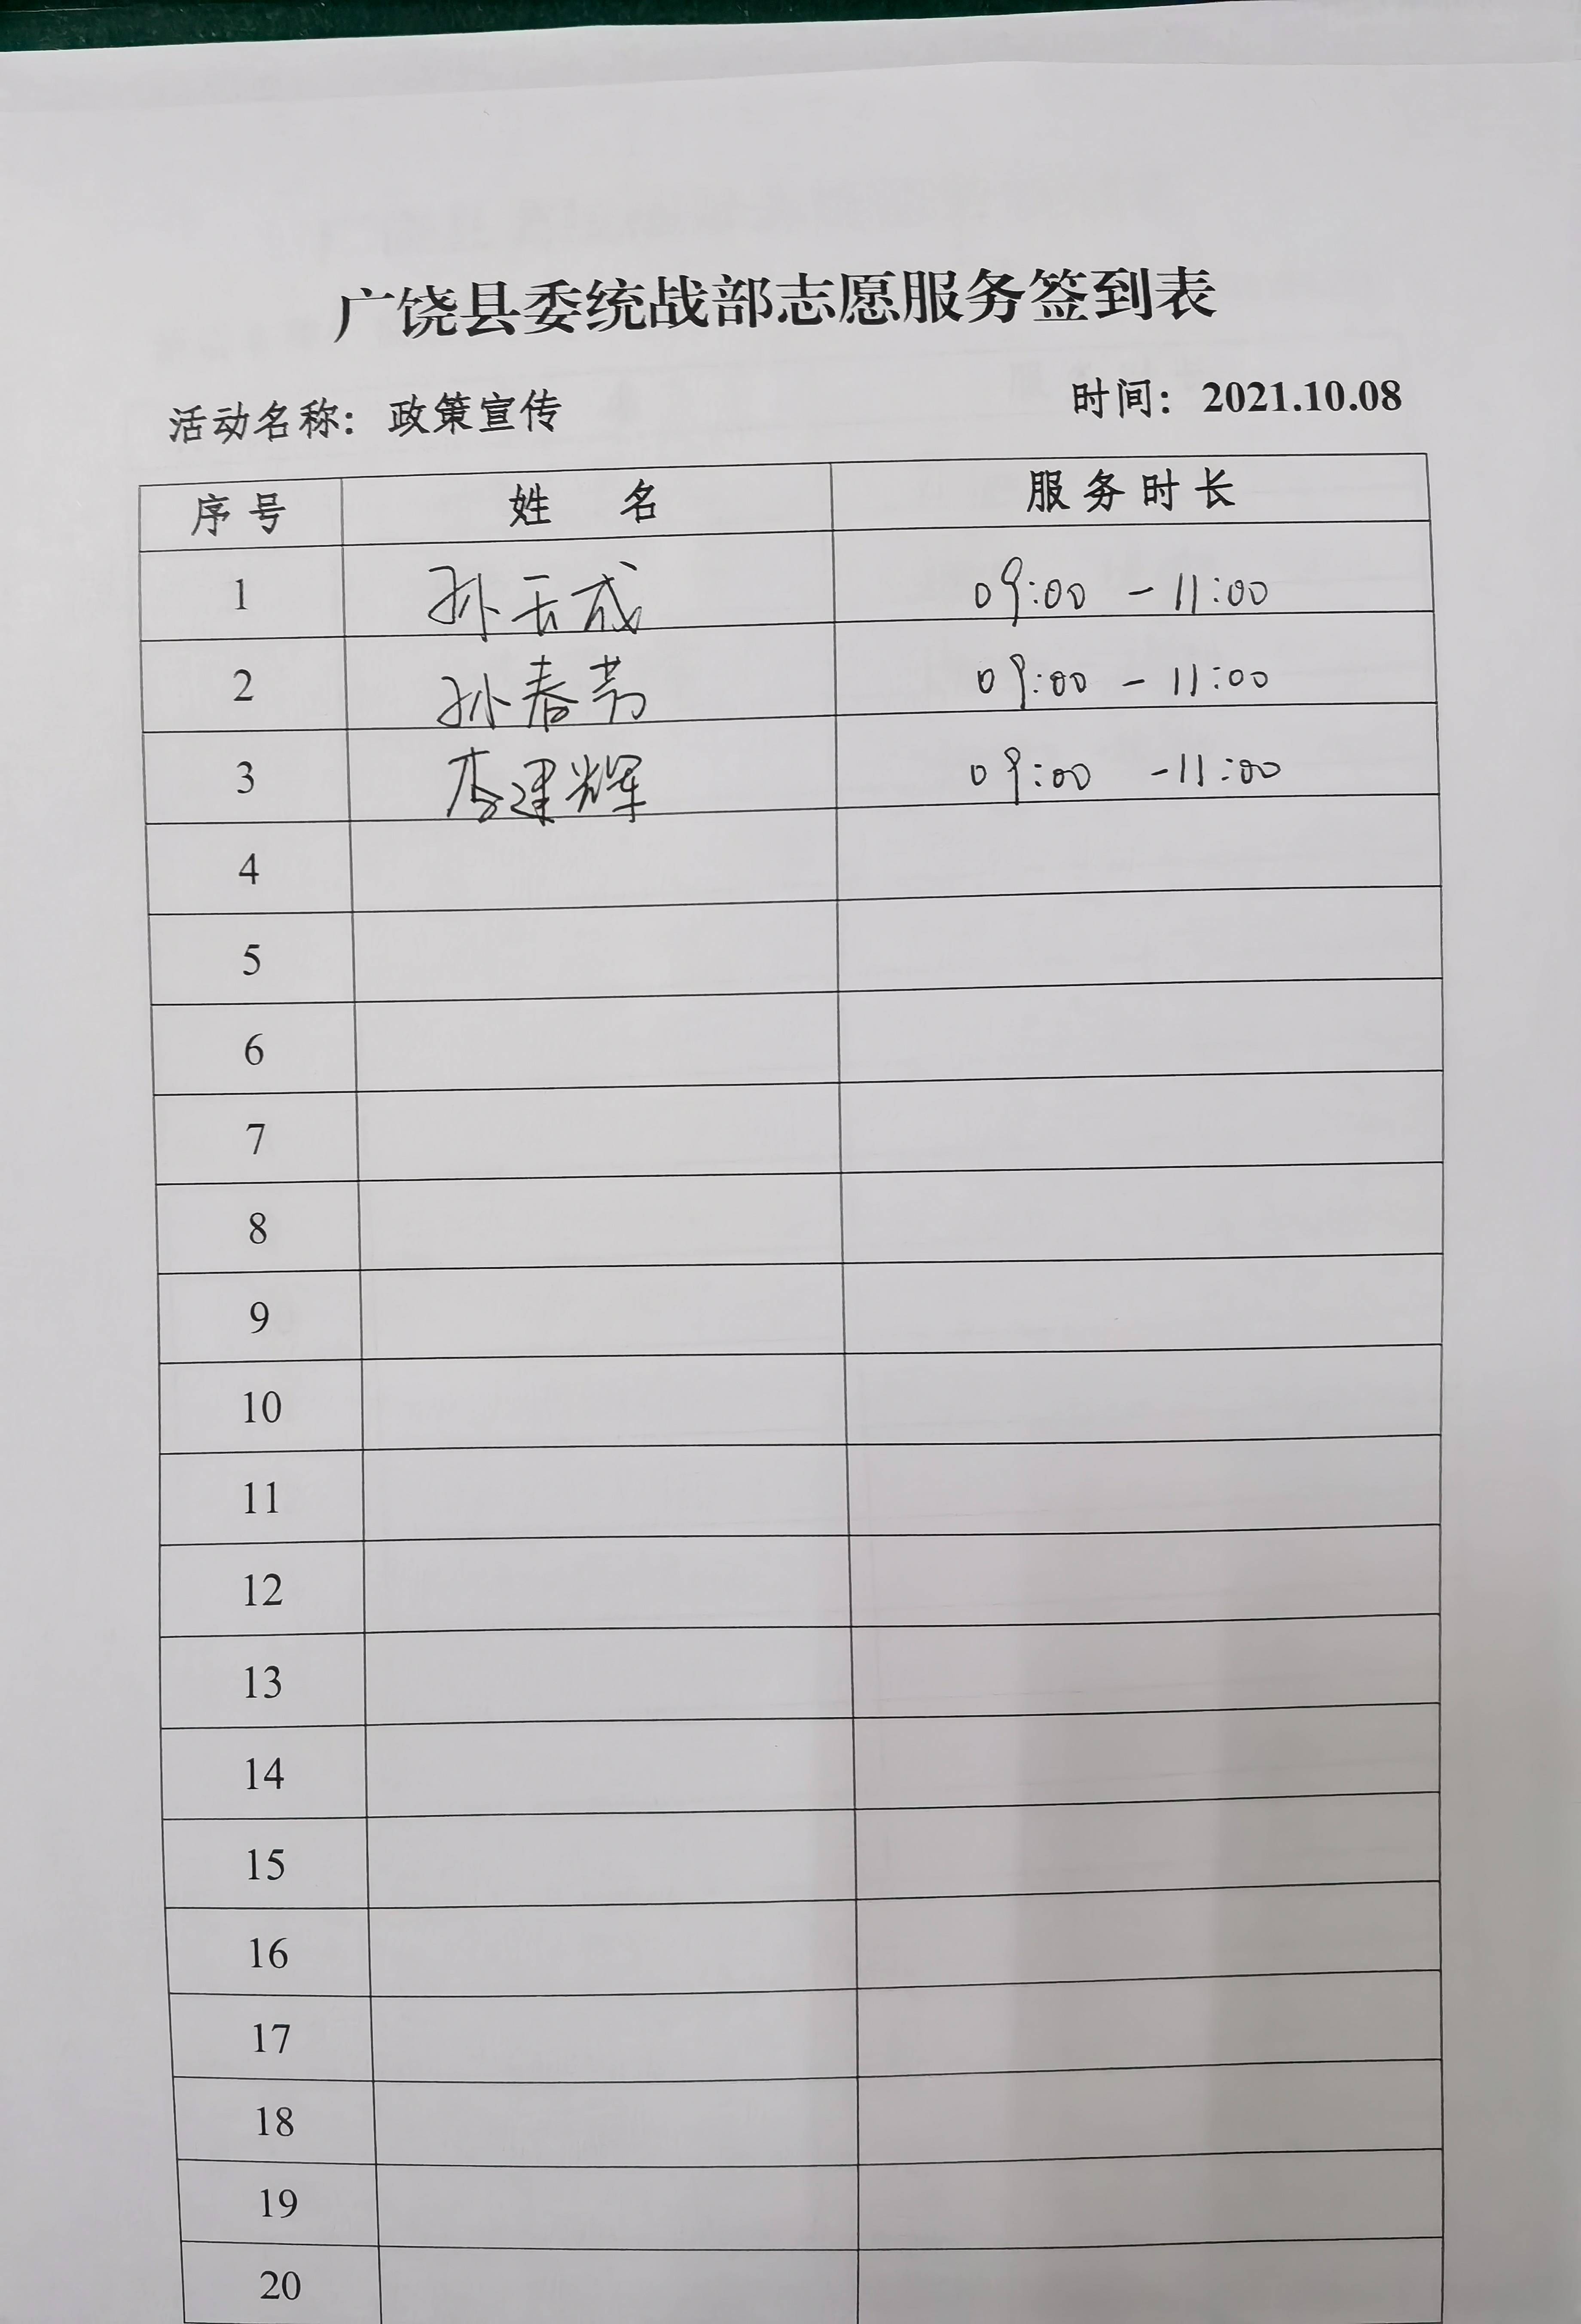 广饶县委统战部志愿服务签到表
活动名称：政策宣传 时间：2021.10.08
序号 姓 名 服务时长
1 孙云成 09:00 - 11:00
2 孙春 09:00 - 11:00
3 李建辉 09:00 - 11:00
4
5
6
7
8
9
10
11
12
13
14
15
16
17
18
19
20